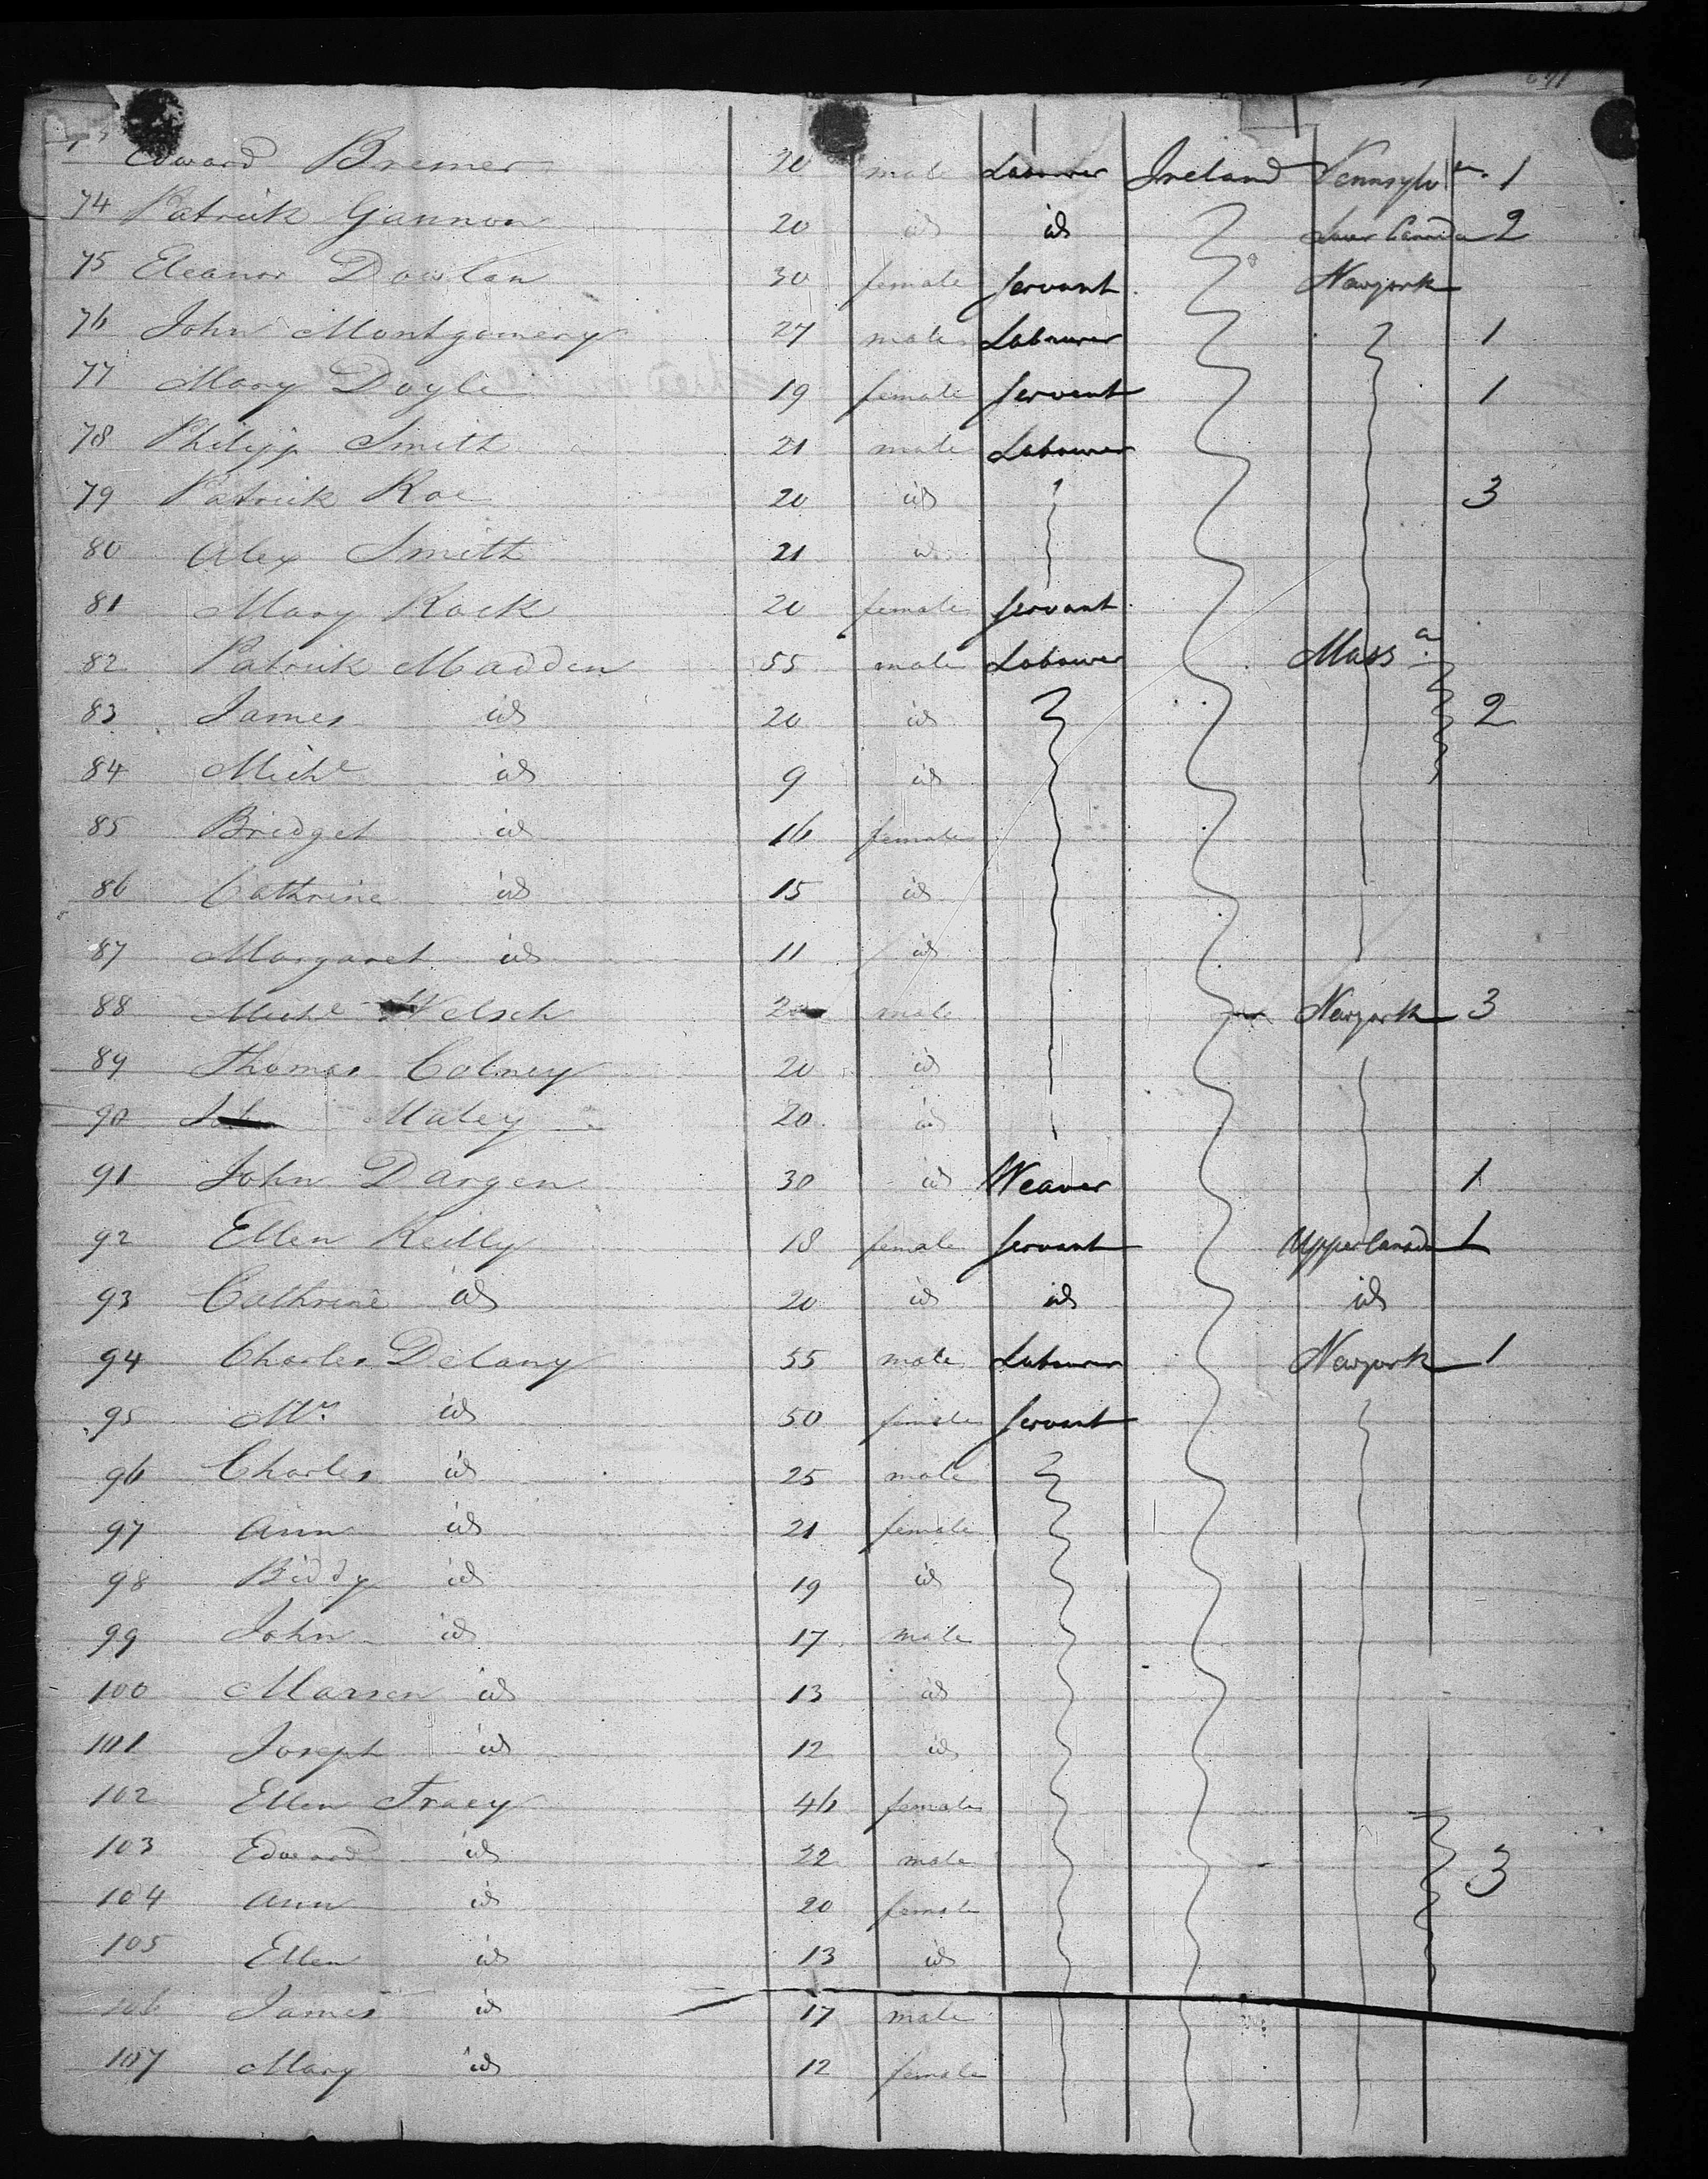 Edward Bremer 20 male Labourer Ireland Pennsylva. 1
74 Patrick Gannon 20 id id Lower Canada 2
75 Eleanor Dowlan 30 female Servant Newyork
76 John Montgomery 27 male Labourer 1
77 Mary Doyle 19 female Servant 1
78 Philipp Smith 21 male Labourer
79 Patrick Roe 20 id 3
80 Alex Smith 21 id
81 Mary Rock 20 female Servant
82 Patrick Madden 55 male Labourer Massa.
83 James id 20 id 2
84 Michl id 9 id
85 Bridget id 16 female
86 Cathrine id 15 id
87 Margaret id 11 id
88 Michl Welsch 20 male Newyork 3
89 Thomas Colney 20 id
90 Maley 20 id
91 John Dargen 30 id Weaver 1
92 Ellen Reilly 18 female Servant Upper Canada 1
93 Cathrine id 20 id id id
94 Charles Delany 55 male Labourer Newyork 1
95 Mrs id 50 female Servant
96 Charles id 25 male
97 Ann id 21 female
98 Biddy id 19 id
99 John id 17 male
100 id 13 id
101 Joseph id 12 id
102 Ellen Tracy 46 female
103 Edward id 22 male 3
104 Ann id 20 female
105 Ellen id 13 id
106 James id 17 male
107 Mary id 12 female